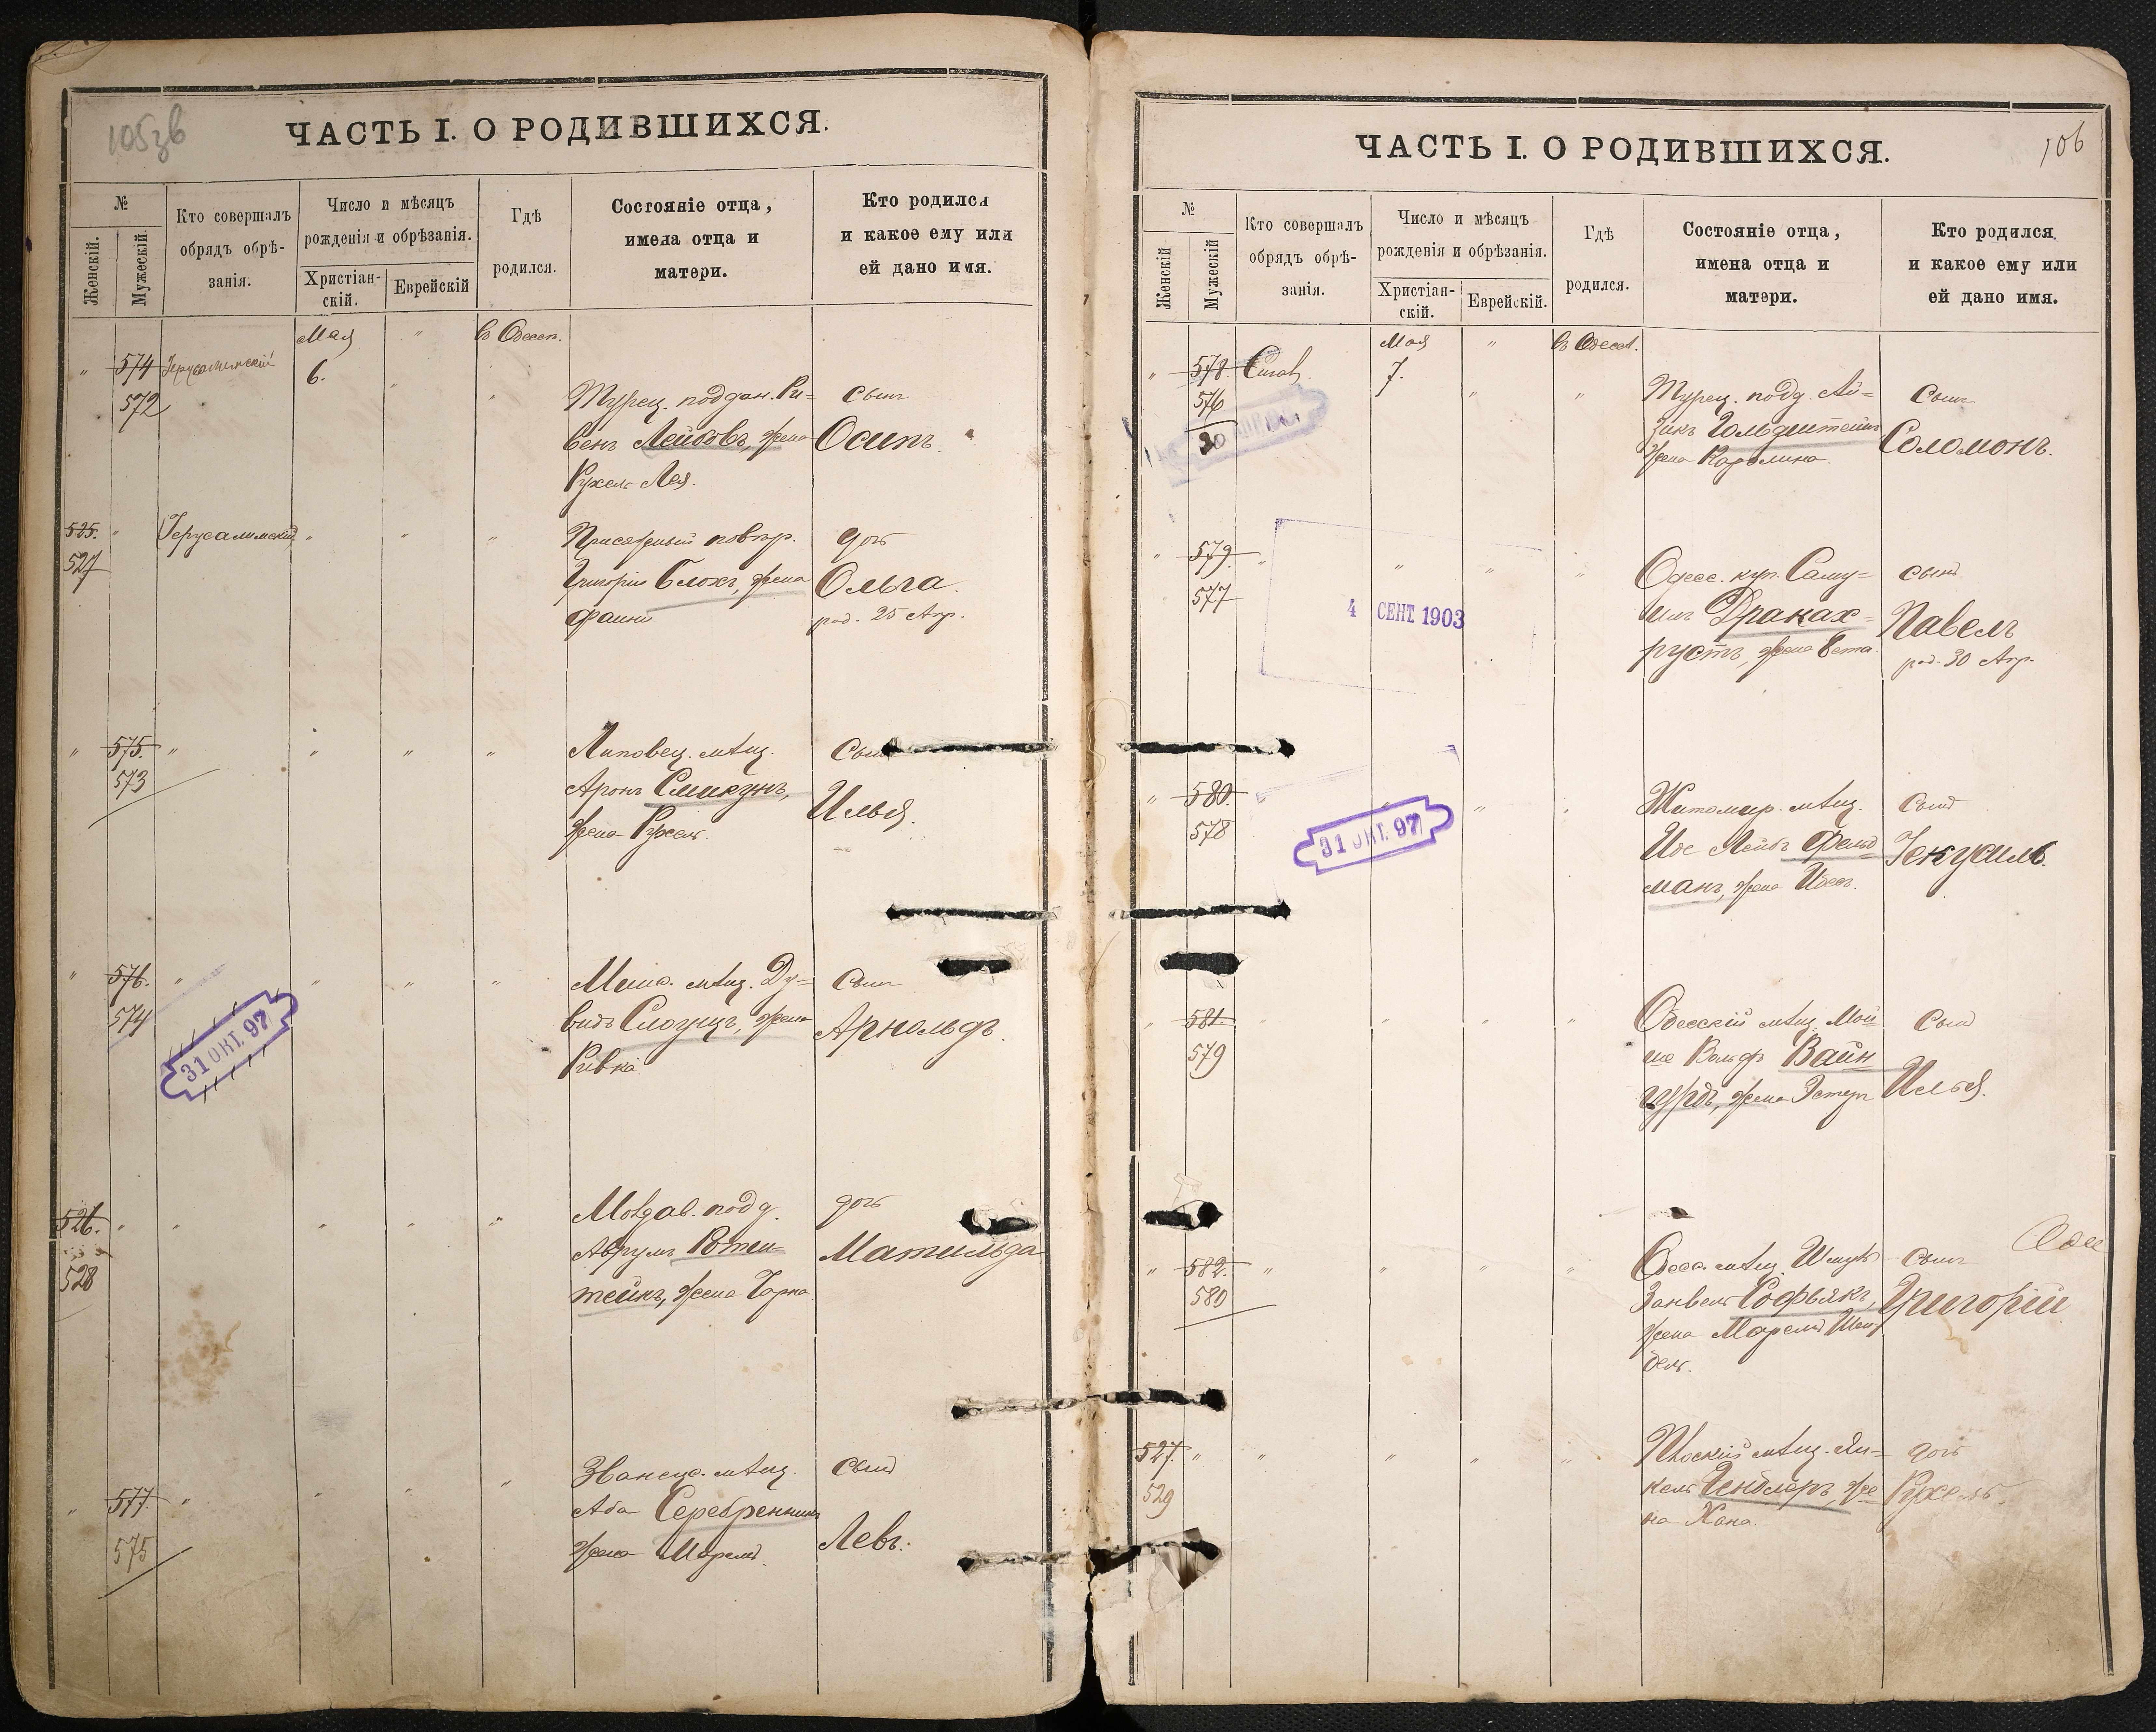 105зв
ЧАСТЬ I. О РОДИВШИХСЯ.
№
Женскій.
Мужескій.
Кто совершалъ
обрядъ обрѣ-
занія.
Число и мѣсяцъ
рожденія и обрѣзанія.
Христіан-
скій.
Еврейскій
Гдѣ
родился.
Состояніе отца,
имена отца и
матери.
Кто родился
и какое ему или
ей дано имя.
Мая " въ Одессѣ.
" 574 Іерусалимскій 6. " "
572
Турец. поддан. Ри=
венъ Лейбовъ, жена
Рухель Лея.
сынъ
Осипъ.
525. " Іерусалимскій " " "
527
Присяжный повѣр.
Григорій Блохъ, жена
Фанни
дочь
Ольга.
род. 25 Апр.
" 575. " " " "
573
Липовец. мѣщ.
Аронъ Смикунъ,
жена Рухель.
сынъ
Илья.
" 576. " " " "
574
31 ОКТ. 97
мѣщ. Ду=
видъ Слоущъ, жена
Ривка
сынъ
Арнольдъ.
526. " " " " "
528
Молдав. подд.
Аврумъ Ротен=
штейнъ, жена Чарна
дочь
Матильда
" 577 " " " "
575
мѣщ.
Аба Серебренникъ
жена
сынъ
Левъ.
106
ЧАСТЬ I. О РОДИВШИХСЯ.
№
Женскій
Мужескій
Кто совершалъ
обрядъ обрѣ-
занія.
Число и мѣсяцъ
рожденія и обрѣзанія.
Христіан-
скій.
Еврейскій.
Гдѣ
родился.
Состояніе отца,
имена отца и
матери.
Кто родился
и какое ему или
ей дано имя.
Мая " въ Одессѣ.
" 578. 7. " "
576
20
Турец. подд. Ай=
зикъ Гольдштейнъ
жена Каролина.
сынъ
Соломонъ.
" 579. " " " "
577
4 СЕНТ. 1903
Одес. куп. Саму=
илъ Дранах=
русть, жена Бета.
сынъ
Павелъ
род. 30 Апр.
" 580. " "
578
31 ОКТ. 97
Житомир. мѣщ.
Лейбъ Фельд
манъ, жена
сынъ
Іекусиль.
" 581. " " " "
579
Одесскій мѣщ. Мой
ше Вольфъ Вайн
гурдъ, жена Эстеръ
сынъ
Илья.
" 582. " " " "
580
Одес. мѣщ. Шмуль
Занвель Софьякъ,
жена Марьемъ Шей
дель.
сынъ
Григорій
527. " " " " "
529
мѣщ. Ян=
кель Чендлеръ, же
на Хана.
дочь
Рухель.